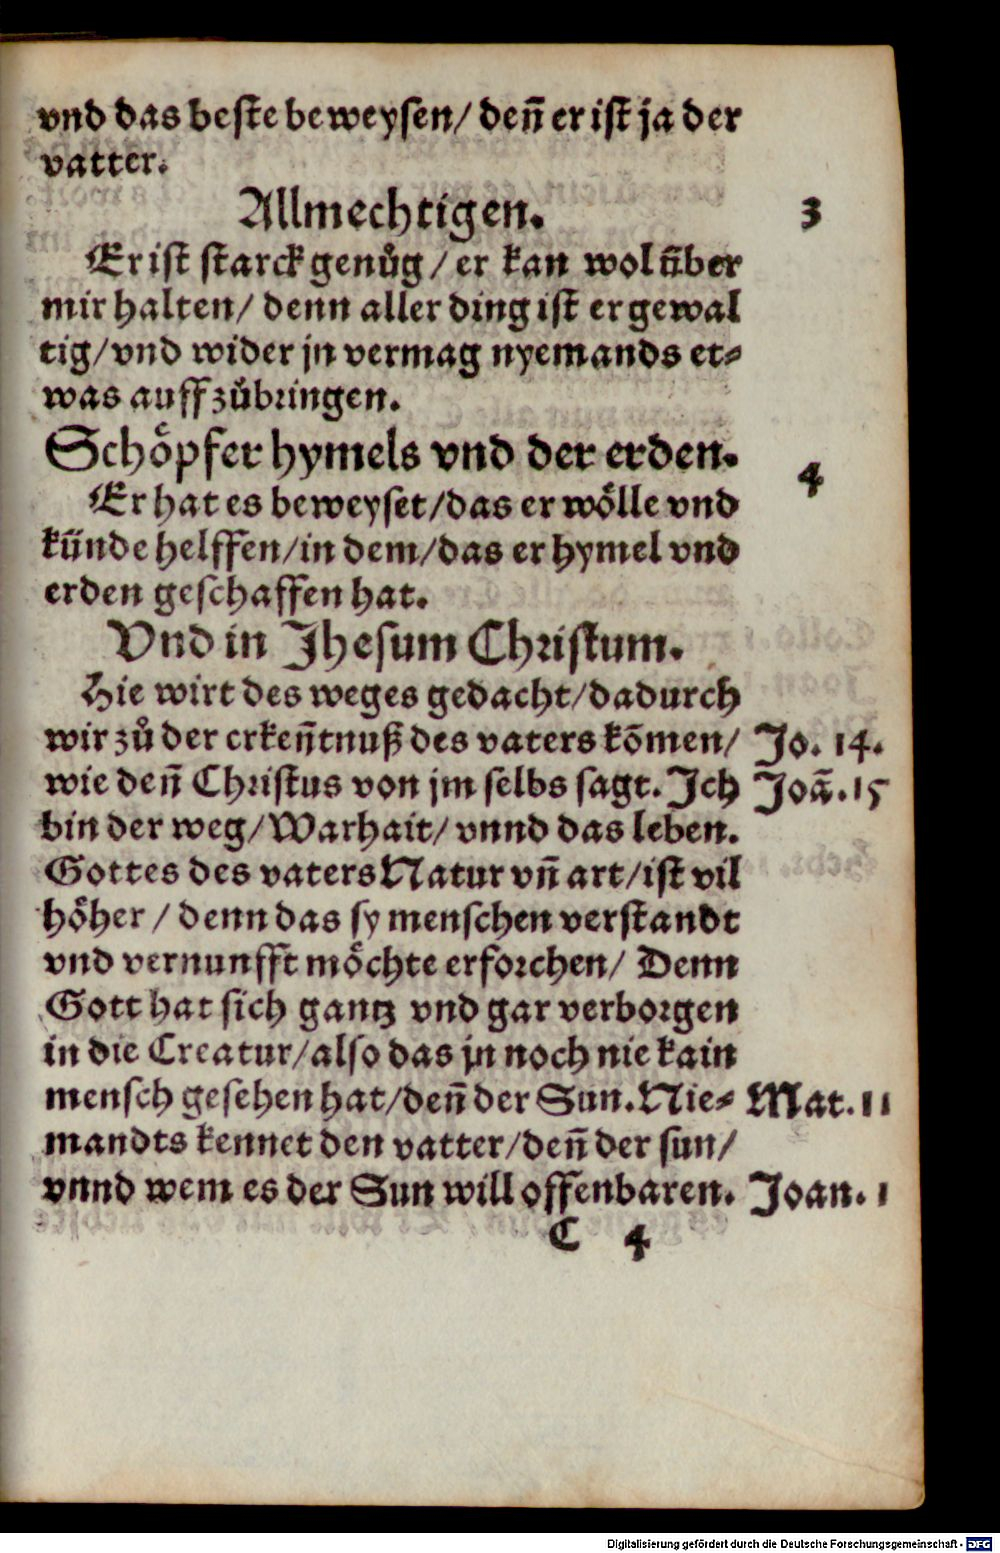 vnd das beste beweysen/ deñ er ist ja der
vatter.
Allmechtigen. 3
Er ist starck genůg/ er kan wol ũber
mir halten/ denn aller ding ist er gewal
tig/ vnd wider jn vermag nyemands et⸗
was auff zůbringen.
Schoͤpfer hymels vnd der erden. 4
Er hat es beweyset/ das er woͤlle vnd
künde helffen/ in dem/ das er hymel vnd
erden geschaffen hat.
Vnd in Jhesum Christum.
Hie wirt des weges gedacht/ dadurch
wir zů der erkeñtnuß des vaters kõmen/ Jo. 14.
wie deñ Christus von jm selbs sagt. Jch Joã. 15
bin der weg/ Warhait/ vnnd das leben.
Gottes des vaters Natur vñ art/ ist vil
hoͤher/ denn das sy menschen verstandt
vnd vernunfft moͤchte erforchen/ Denn
Gott hat sich gantz vnd gar verborgen
in die Creatur/ also das jn noch nie kain
mensch gesehen hat/ deñ der Sun. Nie⸗ Mat. 11
mandts kennet den vatter/ deñ der sun/
vnnd wem es der Sun will offenbaren. Joan. 1
C 4
Digitalisierung gefördert durch die Deutsche Forschungsgemeinschaft - DFG